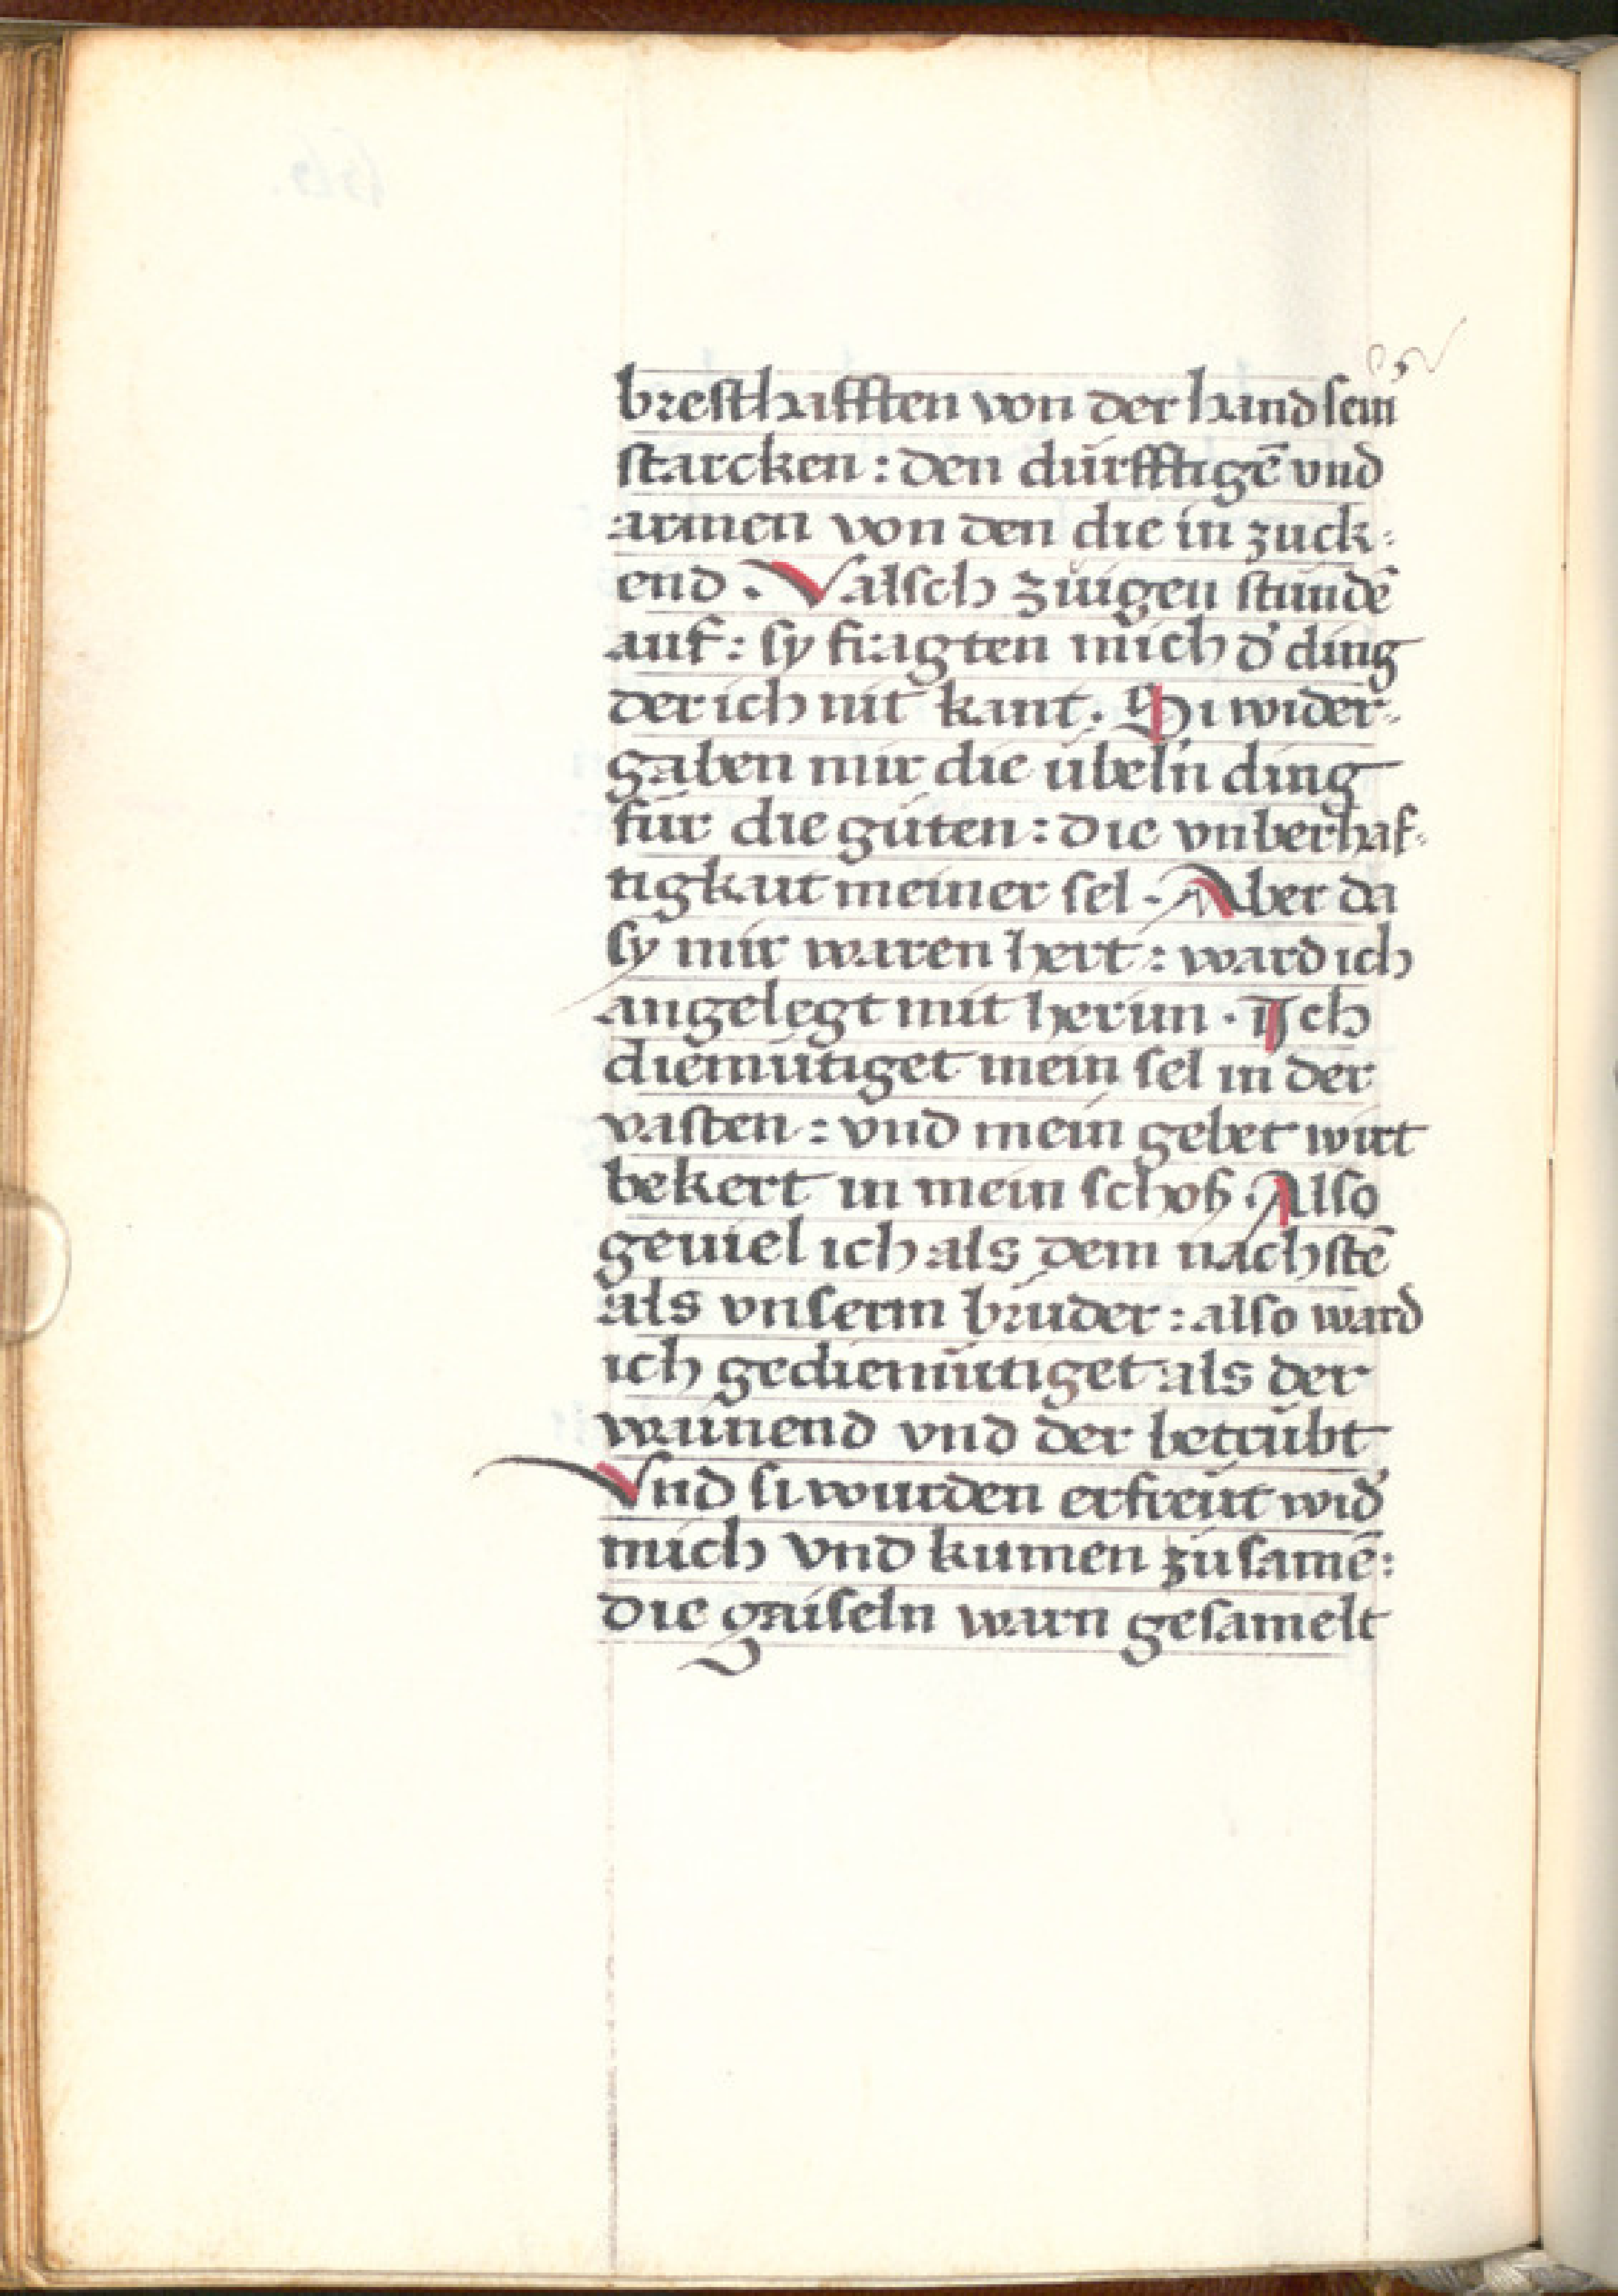 bresthafften von der hand sein̾
starcken : den dürfftigē vnd
armen von den die in zuck⸗
end . Valsch zwigen stündē
auf : sy fragten mich d̾ ding
der ich nit kant . Si wider⸗
gaben mir die übeln ding
für die guten : die vnberhaf⸗
tigkait meiner sel . Aber da
sy mir waren hert : ward ich
angelegt mit heriın . Ich
diemütiget mein sel in der
vasten : vnd mein gebet wirt
bekert in mein schoß . Also
geuiel ich als dem nächstē
als vnserm bruder : also ward
ich gediemütiget als der
wainend vnd der betrübt
Vnd si wurden erfreüt wid̾
mich vnd kumen zusamē :
die gaiseln warn gesamelt